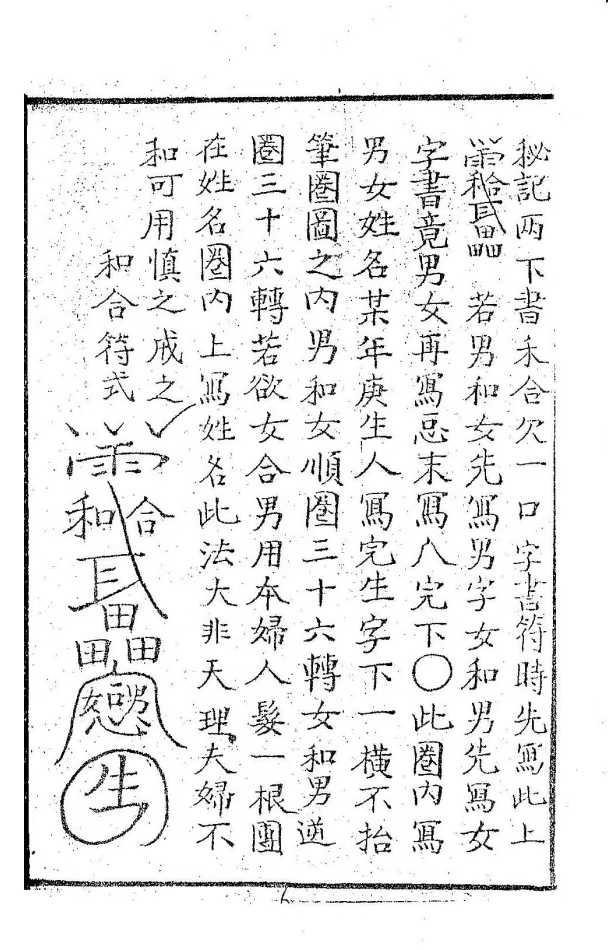 秘記两下書禾合欠一口字書符時先寫此上
若男和女先寫男字女和男先寫女
字書竟男女再寫忌末寫八完下〇此圈内寫
男女姓名某年庚生人寫完生字下一横不抬
筆圈圖之内男和女順圈三十六轉女和男逆
圈三十六轉若欲女合男用本婦人髮一根團
在姓名圈内上寫姓名此法大非天理夫婦不
和可用慎之戒之
和合符式
雨
和合
畾
生